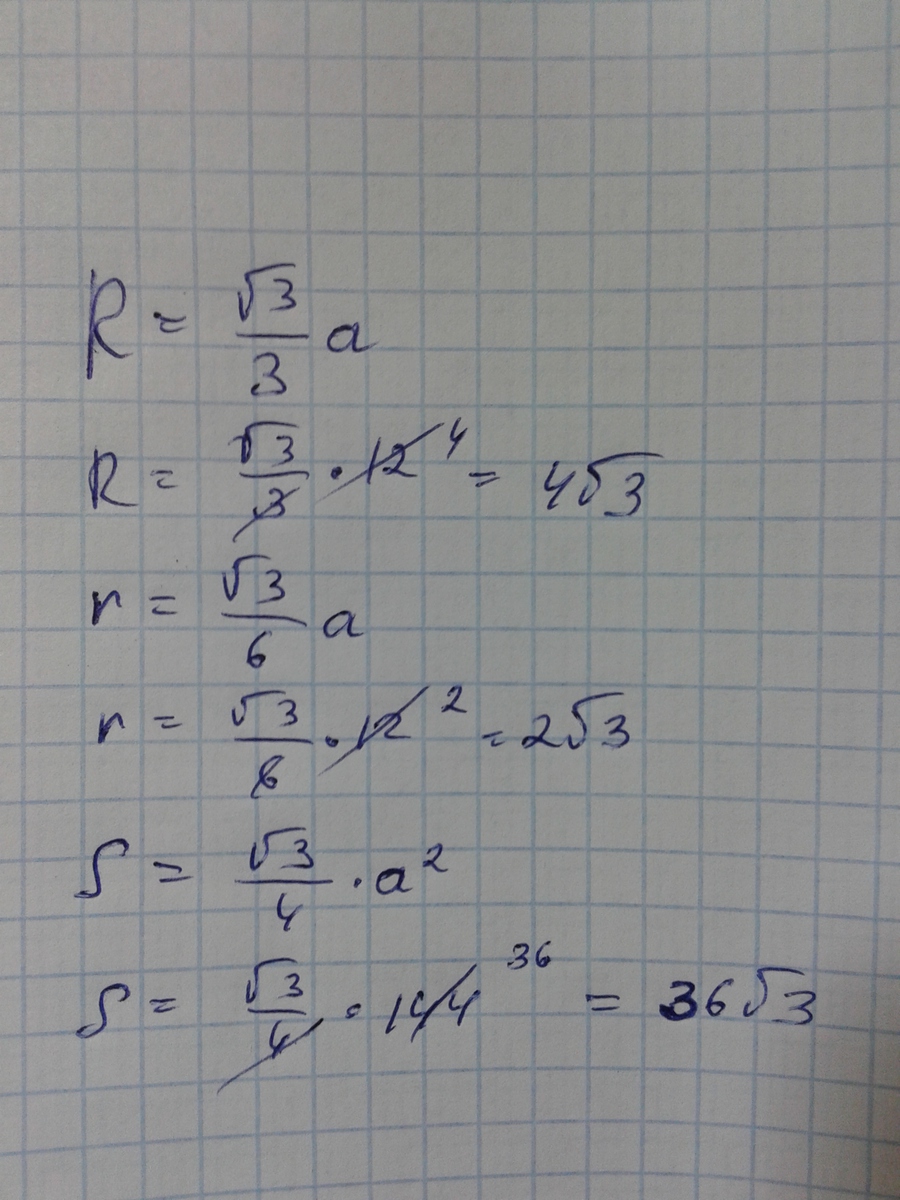 R = √3/3 a
R = √3/3 · 12 4 = 4√3
r = √3/6 a
r = √3/6 · 12 2 = 2√3
S = √3/4 · a²
S = √3/4 · 144 36 = 36√3